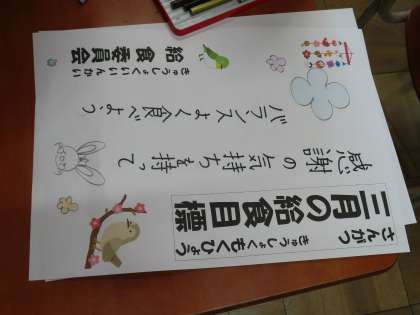 さんがつ きゅうしょくもくひょう
三月の給食目標
感謝の気持ちを持って
バランスよく食べよう
給食委員会
きゅうしょくいいんかい